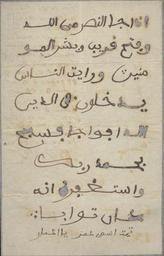 اذا جا النصر من الله
وفتح قريب وبشر المو
منين ورايت الناس
يدخلون في الدين
الله افواجا فسبح
بحمد ربك
واستغفره انه
كان توابا
تمت